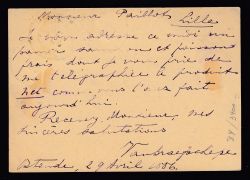 Monsieur Paillot, Lille
Je vous adresse ce midi un
panier sans os et poissons
frais dont je vous prie de
me télégraphier le produit
net comme vous l'avez fait
aujourd'hui.
Recevez, Monsieur, mes
sincères salutations
Ostende, 29 Avril 1886.